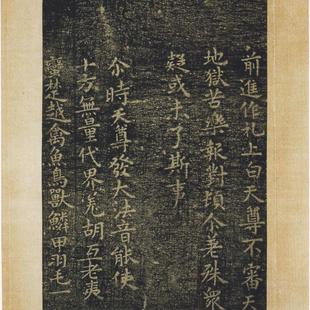 前進作礼上白天尊不審天
地獄苦樂報對頓尒差殊衆
疑或未了斯事
尒時天尊發大法音能使
十方無量代界羌胡互老夷
蠻楚越禽魚鳥獸鱗甲羽毛一